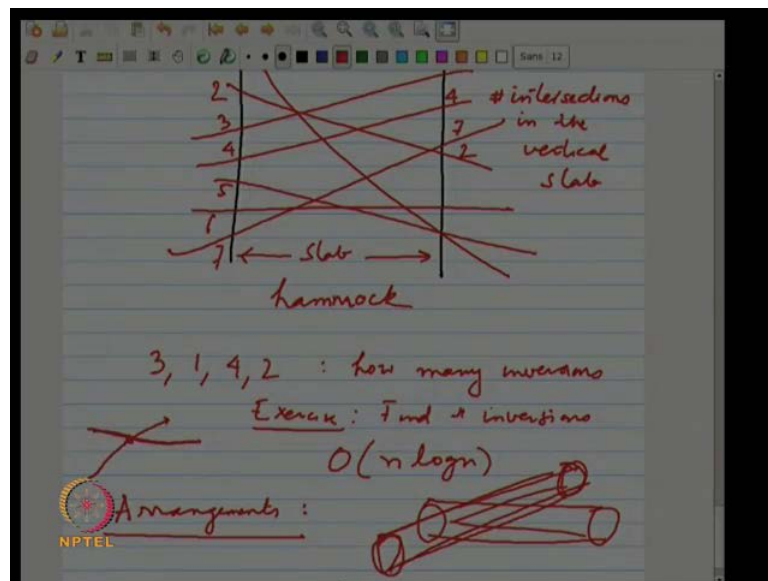 T Sans 12
2 4 # intersections
3 7 in the
4 2 vertical
5 slab
1
7 ← Slab →
hammock
3, 1, 4, 2 : how many inversions
Exercise : Find # inversions
O(n logn)
Arrangements :
NPTEL